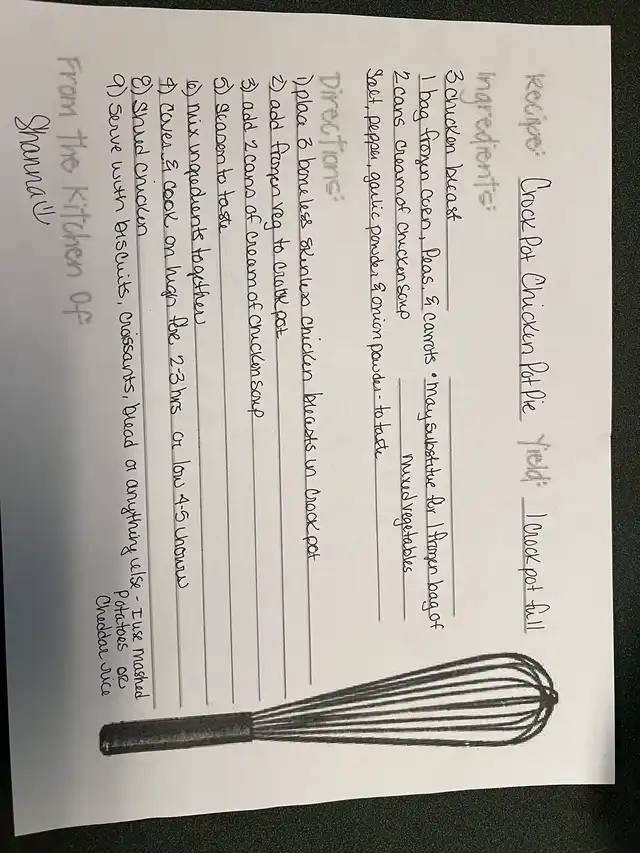 Recipe: Crock Pot Chicken Pot Pie Yield: 1 crockpot full
Ingredients:
3 chicken breast
1 bag frozen corn, Peas, & carrots • may substitute for 1 frozen bag of
mixed vegetables
2 cans cream of chicken soup
Salt, pepper, garlic powder & onion powder - to taste
Directions:
1) place 3 boneless skinless chicken breasts in crock pot
2) add frozen veg to crock pot
3) add 2 cans of cream of chicken soup
5) season to taste
6) mix ingredients together
7) cover & cook on high for 2-3 hrs or low 4-5 hours
8) Shred chicken
9) serve with biscuits, croissants, bread or anything else - I use mashed
potatoes or
cheddar rice
From the Kitchen Of
Shanna